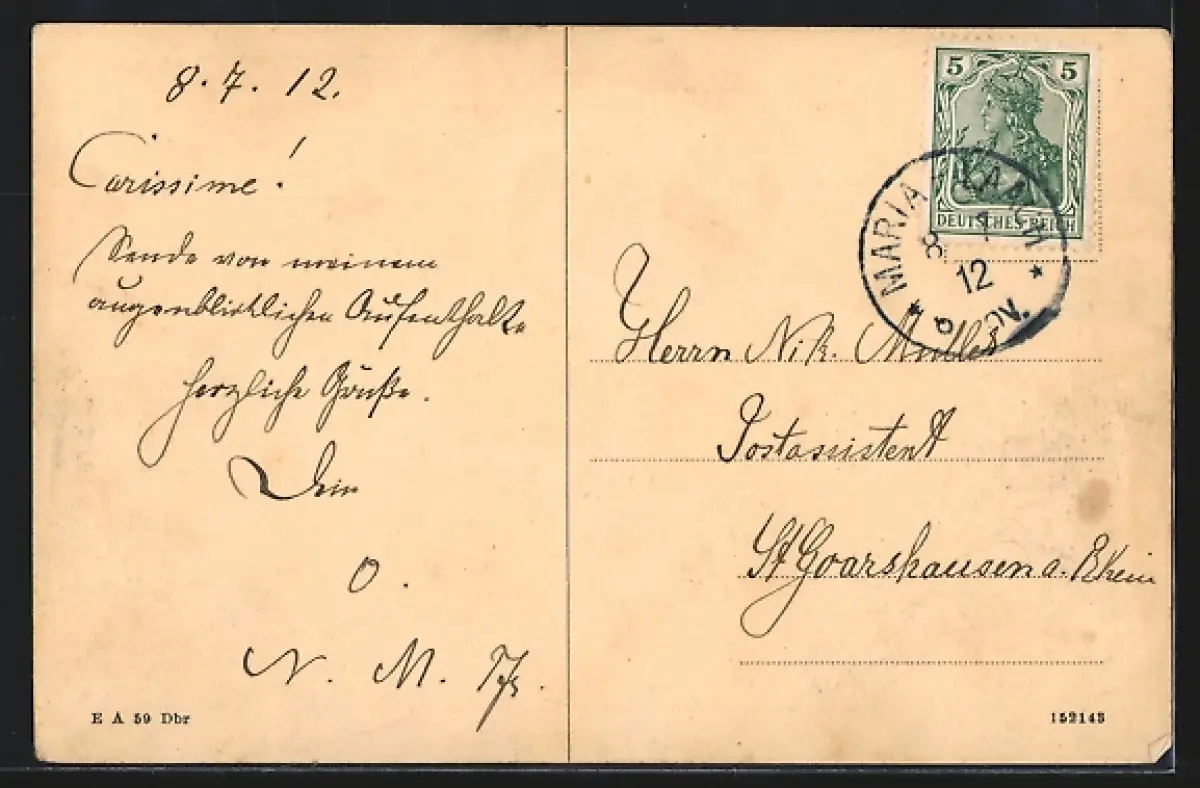 8.7.12.
Carissime!
Sende von meinem
augenblicklichen Aufenthalte
herzliche Grüße.
Dein
O.
N. M.
E A 59 Dbr
5 5
DEUTSCHES REICH
MARIA-LAACH
8 7
12
Herrn Nik. Müller
Postassistent
St Goarshausen a. Rhein
152143